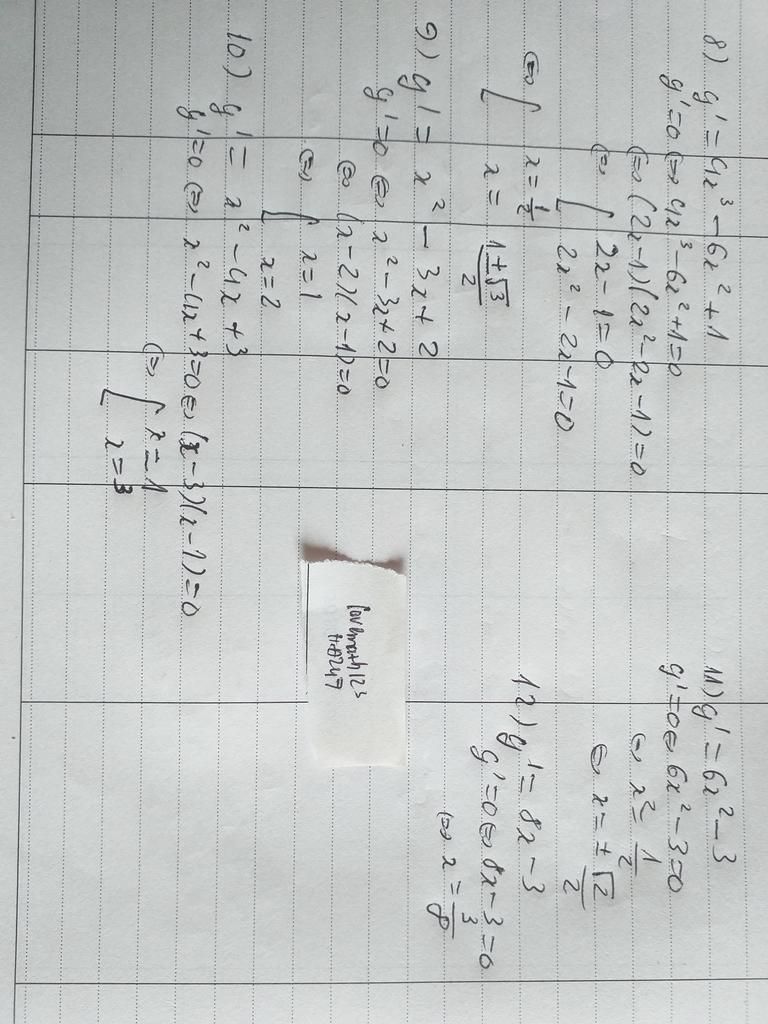 8) y' = 4x³ - 6x² + 1
y' = 0 ⇔ 4x³ - 6x² + 1 = 0
⇔ (2x - 1)(2x² - 2x - 1) = 0
⇔ [ 2x - 1 = 0
2x² - 2x - 1 = 0
⇔ [ x = 1/2
x = (1 ± √3)/2
9) y' = x² - 3x + 2
y' = 0 ⇔ x² - 3x + 2 = 0
⇔ (x - 2)(x - 1) = 0
⇔ [ x = 1
x = 2
10) y' = x² - 4x + 3
y' = 0 ⇔ x² - 4x + 3 = 0 ⇔ (x - 3)(x - 1) = 0
⇔ [ x = 1
x = 3
11) y' = 6x² - 3
y' = 0 ⇔ 6x² - 3 = 0
⇔ x² = 1/2
⇔ x = ± √2/2
12) y' = 8x - 3
y' = 0 ⇔ 8x - 3 = 0
⇔ x = 3/8
lovemath123